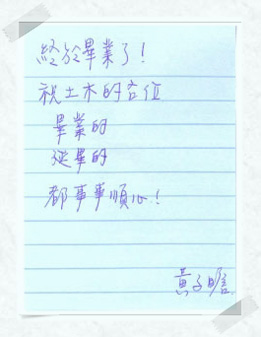 終於畢業了！
祝土木的各位
畢業的
延畢的
都事事順心！
黃子